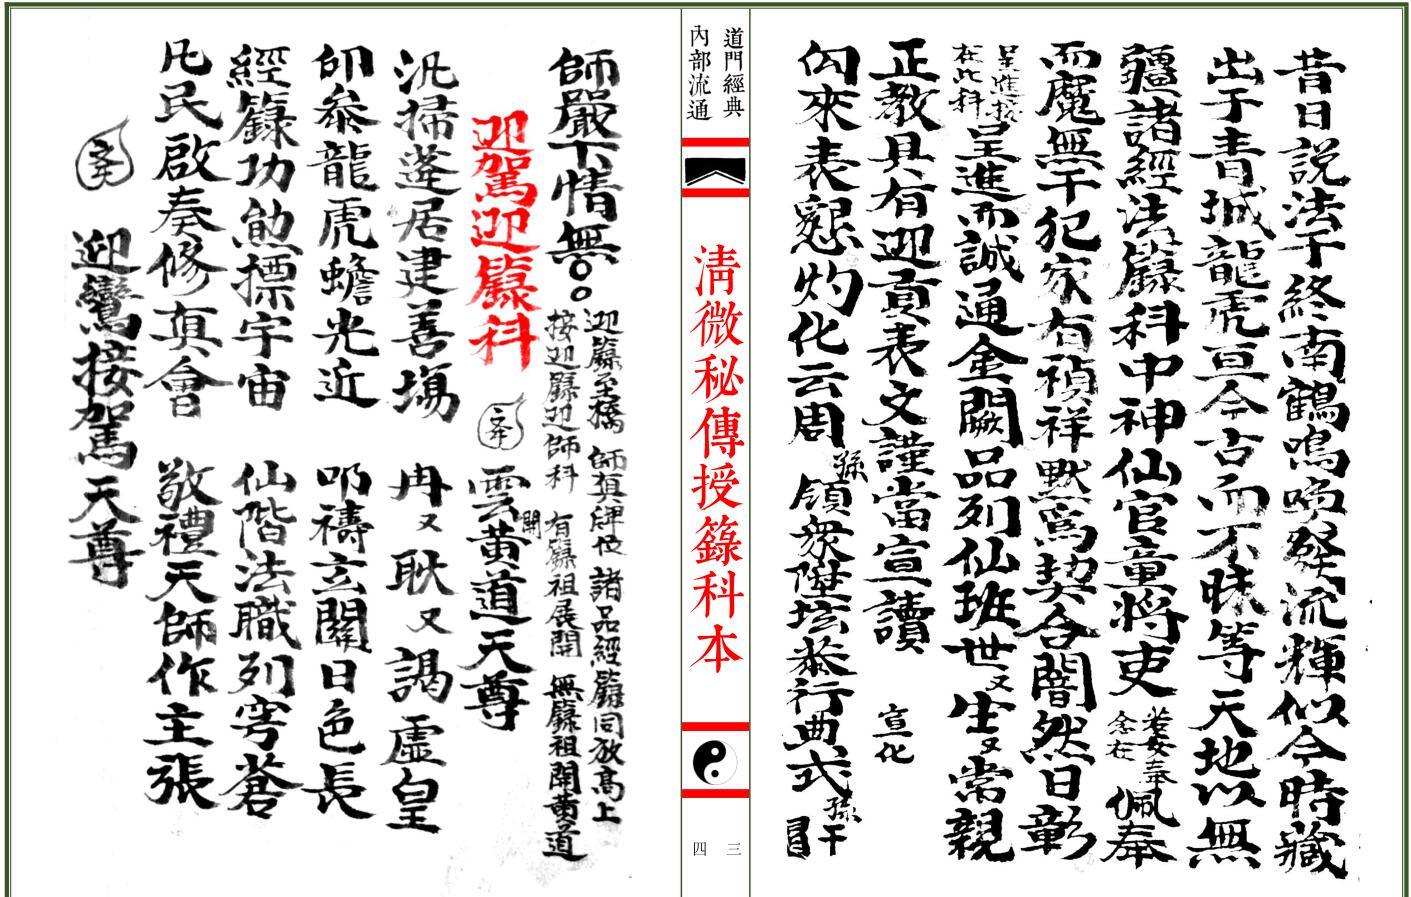 昔日說法于終南鶴鳴喚發流輝似今時藏
出于青城龍虎亘今古而不昧等天地以無
疆諸經法籙科中神仙官童將吏
若女奉
念右
佩奉
而魔無干犯家有禎祥默焉契合闇然日彰
呈進接
在此科
呈進而誠通金闕品列仙班世又生又常親
正教具有迎貢表文謹當宣讀 宣化
因來表懇灼化云周 孫領眾陞坛恭行典式 孫干冒
道門經典
內部流通
清微秘傳授籙科本
三
四
師嚴下情無
迎籙至橋 師真牌位 諸品經籙同放高上
接迎籙迎師科 有籙祖展開 無籙祖開黃道
迎駕迎籙科
雲開黃道天尊
汎掃蓬居建善場 冉又耿又謁虛皇
卯叅龍虎蟾光近 叩禱玄關日色長
經籙功勳標宇宙 仙階法職列穹蒼
凡民啟奏修真會 敬禮天師作主張
迎鸞接駕天尊